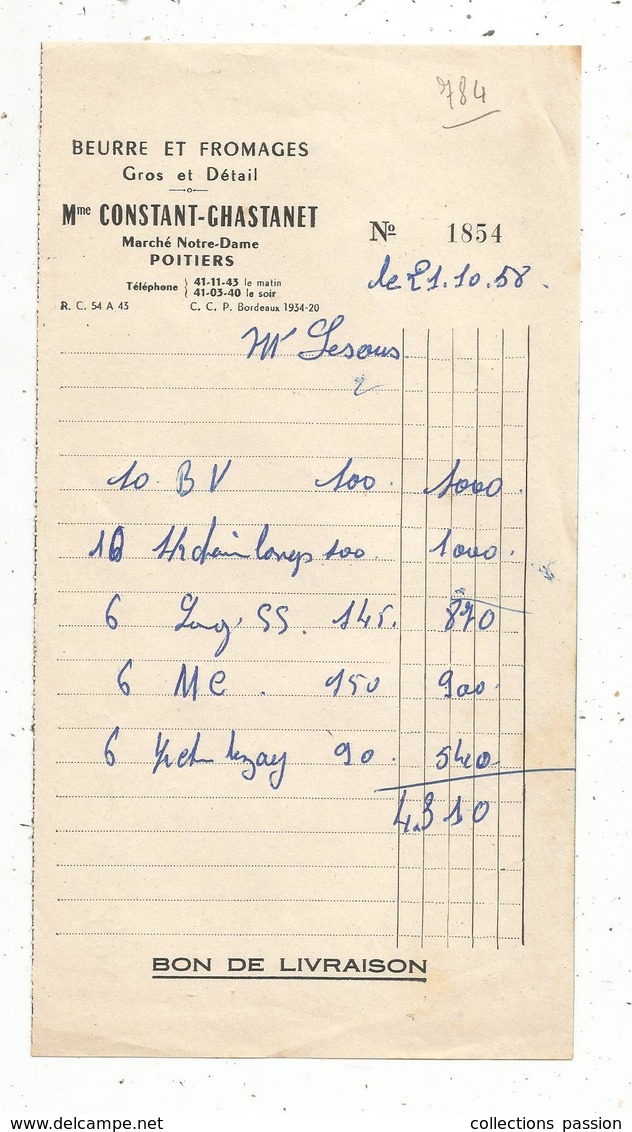 784
BEURRE ET FROMAGES
Gros et Détail
Mme CONSTANT-CHASTANET
Marché Notre-Dame
POITIERS
Téléphone } 41-11-43 le matin
41-03-40 le soir
R. C. 54 A 43 C. C. P. Bordeaux 1934-20
Nº 1854
le 21.10.58.
Mr
10. B V 100. 1000.
10 longs 100. 1000.
6 Long. SS. 145. 870
6 MC. 150 900.
6 90. 540
4.310
BON DE LIVRAISON
collections passion